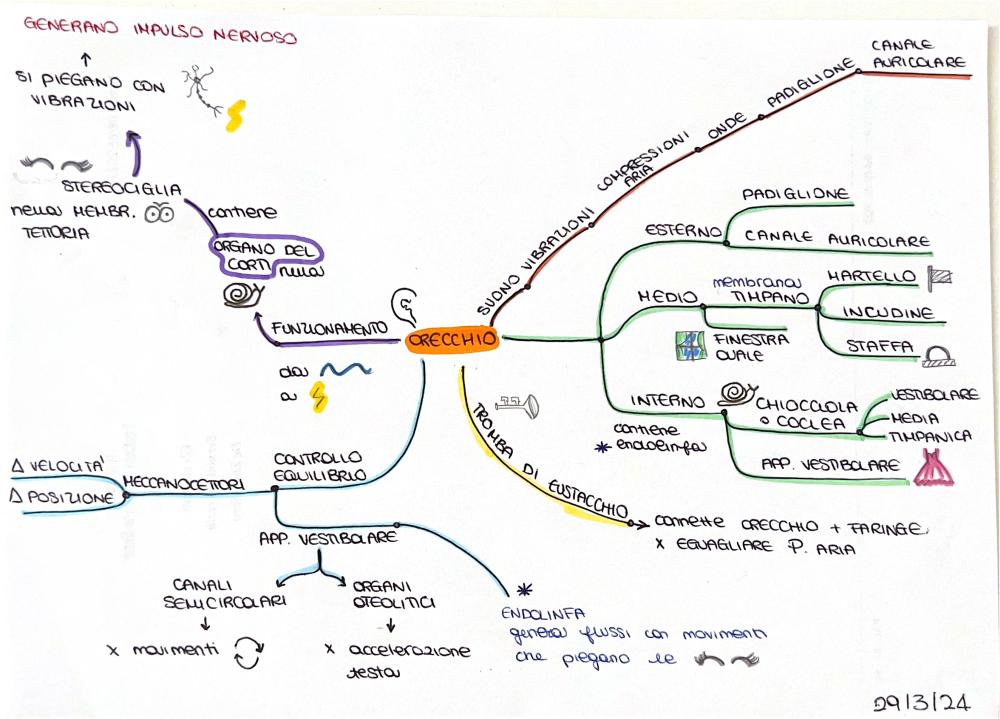 GENERANO IMPULSO NERVOSO
SI PIEGANO CON
VIBRAZIONI
STEREOCIGLIA
nella MEMBR.
TETTORIA
contiene
ORGANO DEL
CORTI nella
FUNZIONAMENTO
da
a
ORECCHIO
SUONO VIBRAZIONI COMPRESSIONI
ARIA
ONDE PADIGLIONE CANALE
AURICOLARE
ESTERNO
PADIGLIONE
CANALE AURICOLARE
MEDIO
membrana
TIMPANO
MARTELLO
INCUDINE
STAFFA
FINESTRA
OVALE
INTERNO
contiene
* endolinfa
CHIOCCIOLA
o COCLEA
VESTIBOLARE
MEDIA
TIMPANICA
APP. VESTIBOLARE
TROMBA DI EUSTACCHIO
connette ORECCHIO + FARINGE
X EGUAGLIARE P. ARIA
CONTROLLO
EQUILIBRIO
MECCANOCETTORI
Δ VELOCITA'
Δ POSIZIONE
APP. VESTIBOLARE
CANALI
SEMICIRCOLARI
X movimenti
ORGANI
OTOLITICI
X accelerazione
testa
*
ENDOLINFA
genera flussi con movimenti
che piegano le
29/3/24